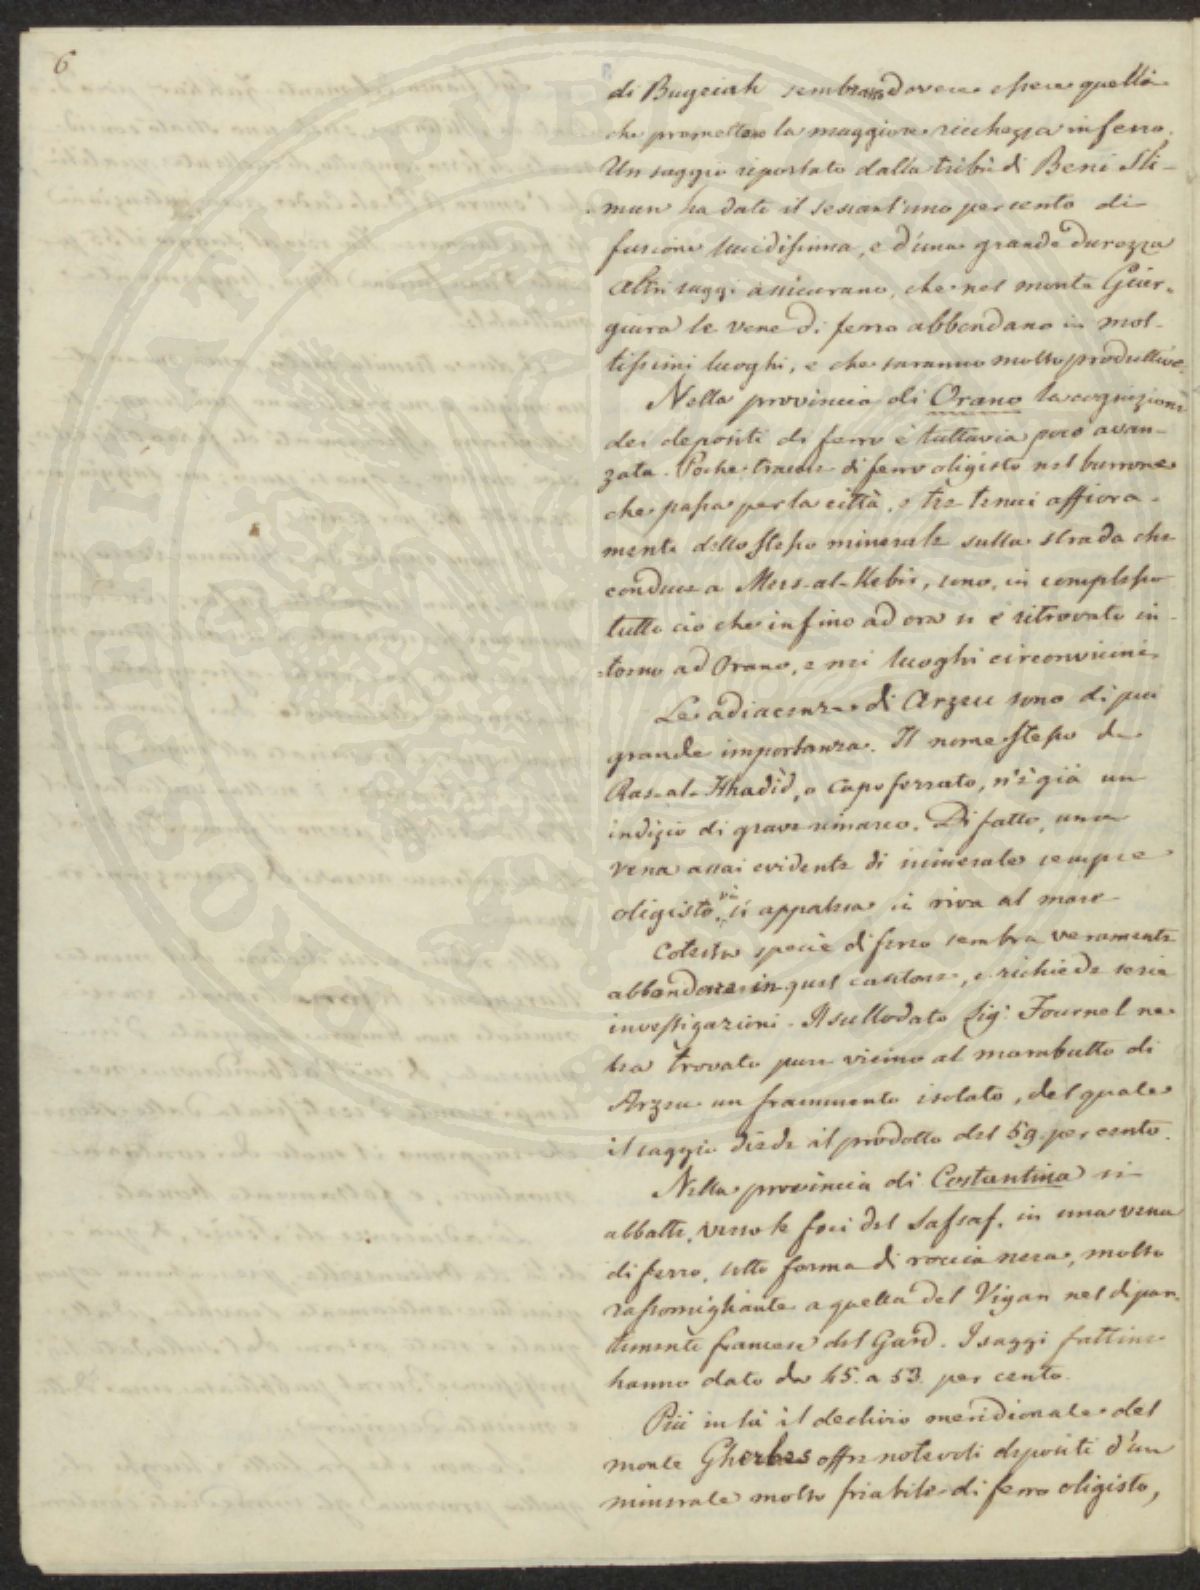 6
di Bugeiah sembrano dovere essere quelle
che promettono la maggiore ricchezza in ferro.
Un saggio riportato dalla tribù di Beni Sli-
man ha dato il sessant'uno per cento di
fusione lucidissima, e d'una grande durezza
Altri saggi assicurano, che nel monte Giur-
giura le vene di ferro abbondano in mol-
tissimi luoghi, e che saranno molto produttive.
Nella provincia di Orano la cognizione
dei depositi di ferro è tuttavia poco avan-
zata. Poche tracce di ferro oligisto nel burrone
che passa per la città, e tre tenui affiora-
menti dello stesso minerale sulla strada che
conduce a Mers-al-Kebir, sono, in complesso
tutto ciò che infino ad ora si è ritrovato in-
torno ad Orano, e nei luoghi circonvicini.
Le adiacenze di Arzeu sono di più
grande importanza. Il nome stesso di
Ras-al-Hhadid, o capo ferrato, n'è già un
indizio di grave rimarco. Di fatto, una
vena assai evidente di minerale sempre
oligisto, vi si appalesa in riva al mare
Cotesta specie di ferro sembra veramente
abbondare in quel cantone, e richiede serie
investigazioni. Il sullodato Sig. Fournel ne
ha trovato pure vicino al marabutto di
Arzeu un frammento isolato, del quale
il saggio diede il prodotto del 59. per cento.
Nella provincia di Costantina si
abbatte, verso le foci del Safsaf, in una vena
di ferro, sotto forma di roccia nera, molto
rassomigliante a quella del Vigan nel dipar-
timento francese del Gard. I saggi fattine
hanno dato da 45. a 53. per cento.
Più in là il declivio meridionale del
monte Gherbes offre notevoli depositi d'un
minerale molto friabile di ferro oligisto,